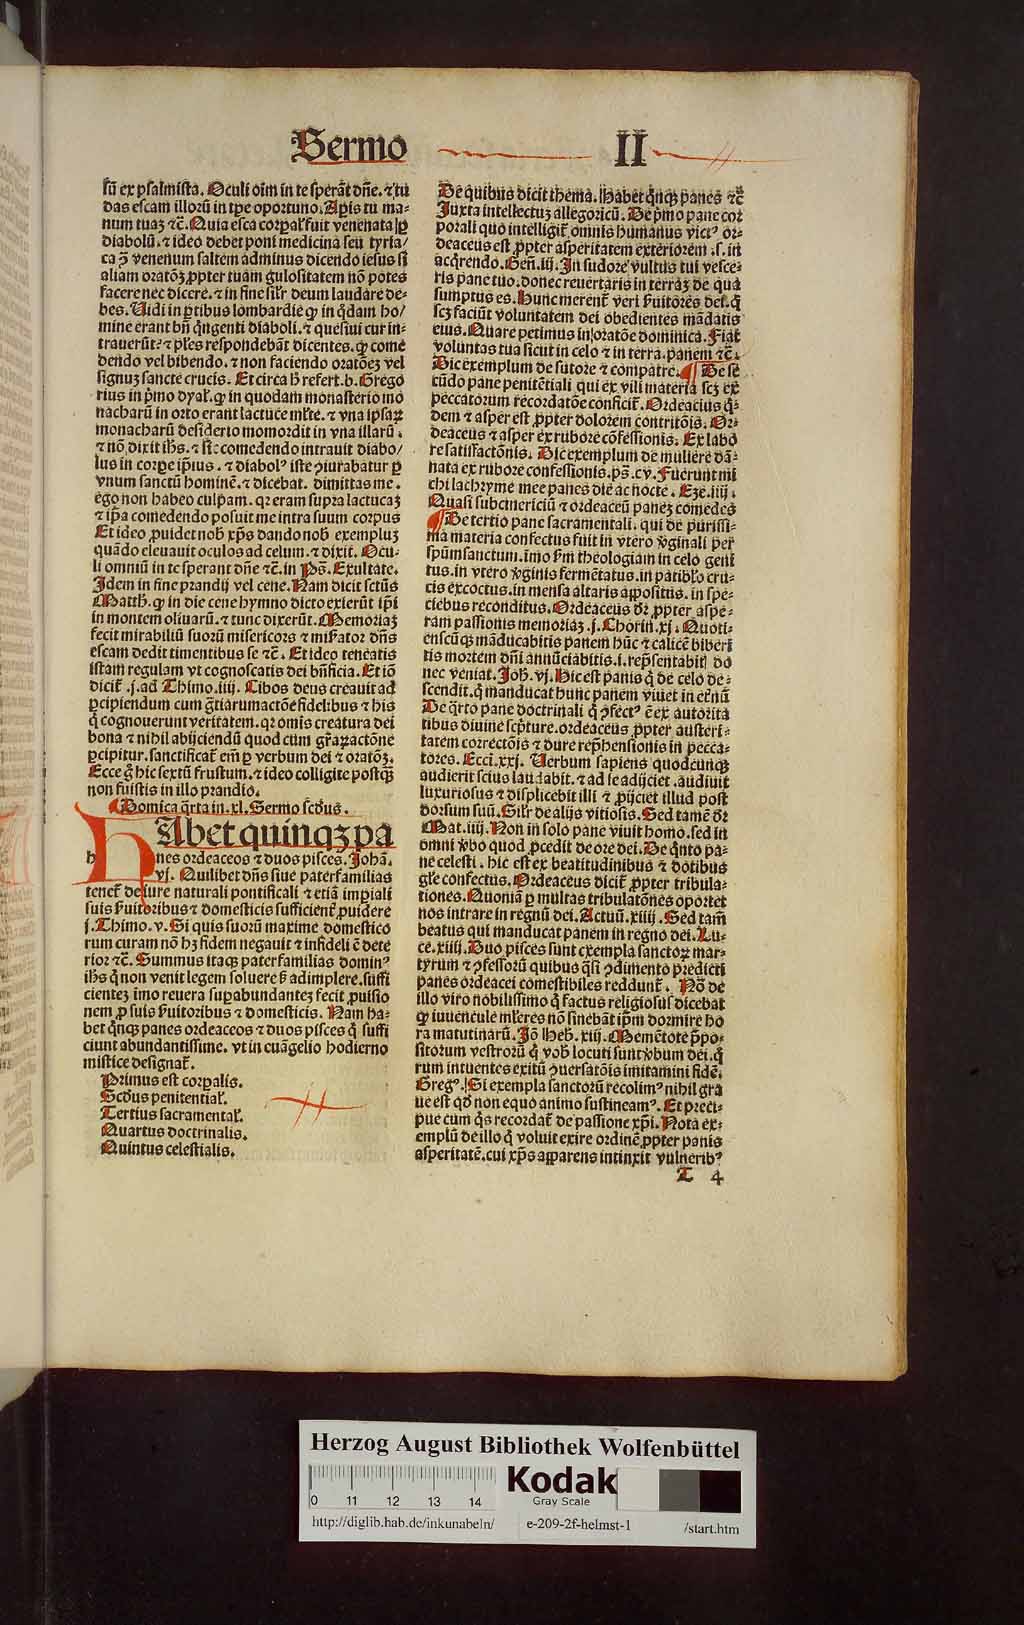 Sermo II
sū ex psalmista. Oculi oīm in te sperāt dñe. ⁊ tu
das escam illorū in tꝑe oportuno. Aꝑis tu ma-
num tuaꝫ ⁊c̄. Quia esca corꝑal̕ fuit venenata ꝑ
diabolū. ⁊ ideo debet poni medicina seu tyria/
ca ꝯ̄ venenum saltem adminus dicendo iesus si
aliam oratōꝫ ꝓpter tuam gulositatem nō potes
facere nec dicere. ⁊ in fine sil̕r deum laudare de-
bes. Uidi in ꝑtibus lombardie ꝙ in q̄dam ho/
mine erant bn̄ q̄ngenti diaboli. ⁊ quesiui cur in-
trauerūt? ⁊ pl̕es respondebāt dicentes. ꝙ come
dendo vel bibendo. ⁊ non faciendo oratōeꝫ vel
signuꝫ sancte crucis. Et circa h̄ refert .b. Grego
rius in p̄mo dyal̕. ꝙ in quodam monasterio mo
nacharū in orto erant lactuce ml̕te. ⁊ vna ipsaꝝ
monacharū desiderio momordit in vna illarū .
⁊ nō dixit ih̄s. ⁊ sic comedendo intrauit diabo/
lus in corꝑe ip̄ius . ⁊ diabolꝰ iste ꝯiurabatur ꝑ
vnum sanctū hominē. ⁊ dicebat. dimittas me.
ego non habeo culpam. qꝛ eram supra lactucaꝫ
⁊ ip̄a comedendo posuit me intra suum corpus
Et ideo ꝓuidet nob̄ xp̄s dando nob̄ exempluꝫ
quādo eleuauit oculos ad celum. ⁊ dixit. Ocu-
li omniū in te sperant dñe ⁊c̄. in Ps̄. Exultate.
Idem in fine prandij vel cene. Nam dicit sct̄us
Matth̄. ꝙ in die cene hymno dicto exierūt ip̄i
in montem oliuarū. ⁊ tunc dixerūt. Memoriaꝫ
fecit mirabiliū suorū misericors ⁊ mis̕ator dn̄s
escam dedit timentibus se ⁊c̄. Et ideo teneatis
istam regulam vt cognoscatis dei bn̄ficia. Et iō
dicit̄ .j. ad Thimo. iiij. Cibos deus creauit ad
ꝑcipiendum cum gr̄tiarumactōe fidelibus ⁊ his
q̄ cognouerunt veritatem. qꝛ omīs creatura dei
bona ⁊ nihil abijciendū quod cum gr̄aꝝactōne
ꝑcipitur. sanctificat̄ em̄ ꝑ verbum dei ⁊ oratōꝫ.
Ecce ḡ hic sextū frustum. ⁊ ideo colligite postq̄ꝫ
non fuistis in illo prandio.
Domica q̄rta in .xl. Sermo scd̄us .
HAbet quinqꝫ pa
nes ordeaceos ⁊ duos pisces. Johā.
vj. Quilibet dn̄s siue paterfamilias
tenet̄ de iure naturali pontificali ⁊ etiā imꝑiali
suis ẜuitoribus ⁊ domesticis sufficient̄ ꝓuidere
j. Thimo. v. Si quis suorū maxime domestico
rum curam nō hꝫ fidem negauit ⁊ infideli ē dete
rior ⁊c̄. Summus itaqꝫ paterfamilias dominꝰ
ih̄s q̄ non venit legem soluere ẜ adimplere. suffi
cienteꝫ īmo reuera suꝑabundanteꝫ fecit ꝓuisio
nem ꝓ suis ẜuitoribus ⁊ domesticis. Nam ha-
bet q̄nqꝫ panes ordeaceos ⁊ duos pisces q̄ suffi
ciunt abundantissime. vt in euāgelio hodierno
mistice designat̄.
Primus est corꝑalis.
Scd̄us penitential̕.
Tertius sacramental̕.
Quartus doctrinalis.
Quintus celestialis.
De quibus dicit thema. Habet q̄nqꝫ panes ⁊c̄
Juxta intellectuꝫ allegoricū. De p̄mo pane cor
porali quo intelligit̄ omnis humanus victꝰ or-
deaceus est ꝓpter asperitatem exteriorem .s. in
acq̄rendo. Gen̄. iij. In sudore vultus tui vesce-
ris pane tuo. donec reuertaris in terraꝫ de qua
sumptus es. Hunc merent̄ veri ẜuitores dei. q̄
scꝫ faciūt voluntatem dei obedientes mādatis
eius. Quare petimus in oratōe dominica. Fiat
voluntas tua sicut in celo ⁊ in terra. panem ⁊c̄.
Dic exemplum de sutore ⁊ compatre. De se
cūdo pane penitētiali qui ex vili materia scꝫ ex
peccatorum recordatōe conficit̄. Ordeacius q̄-
dem ⁊ asper est ꝓpter dolorem contritōis. Or-
deaceus ⁊ asper ex rubore cōfessionis. Ex labo
re satisfactōnis. Dic exemplum de muliere dā-
nata ex rubore confessionis. ps̄. cv. Fuerunt mi
chi lachryme mee panes die ac nocte. Eze. iiij.
Quasi subcinericiū ⁊ ordeaceū paneꝫ comedes
De tertio pane sacramentali. qui de purissi-
ma materia confectus fuit in vtero v̄ginali per
spūmsanctum. īmo ẜm theologiam in celo geni
tus. in vtero v̄ginis fermētatus. in patibl̕o cru-
cis excoctus. in mensa altaris appositus. in spe-
ciebus reconditus. Ordeaceus dr̄ ꝓpter aspe-
ram passionis memoriaꝫ .j. Chorin. xj. Quoti-
enscūqꝫ māducabitis panem hūc ⁊ calicē biberi
tis mortem dn̄i annūciabitis .i. rep̄sentabit̄ do
nec veniat. Joh̄. vj. Hic est panis q̄ de celo de-
scendit. q̄ manducat hunc panem viuet in et̄nū
De q̄rto pane doctrinali q̄ ꝯfectꝰ ē ex autorita
tibus diuine scp̄ture. ordeaceus ꝓpter austeri-
tatem correctōis ⁊ dure rep̄hensionis in pecca-
tores. Ecci. xxj. Uerbum sapiens quodcunqꝫ
audierit scius laudabit. ⁊ ad se adijciet. audiuit
luxuriosus ⁊ displicebit illi ⁊ ꝓijciet illud post
dorsum suū. Sil̕r de alijs vitiosis. Sed tamē dr̄
Mat. iiij. Non in solo pane viuit homo. sed in
omni v̄bo quod ꝓcedit de ore dei. De q̄nto pa-
ne celesti. hic est ex beatitudinibus ⁊ dotibus
gl̕e confectus. Ordeaceus dicit̄ ꝓpter tribula-
tiones. Quoniā ꝑ multas tribulatōnes oportet
nos intrare in regnū dei. Actuū. xiiij. Sed tam̄
beatus qui manducat panem in regno dei. Lu-
ce. xiiij. Duo pisces sunt exempla sanctoꝝ mar-
tyrum ⁊ ꝯfessorū quibus q̄si ꝯdimento predicti
panes ordeacei comestibiles reddunt̄. Nō de
illo viro nobilissimo q̄ factus religiosus dicebat
ꝙ iuuencule ml̕eres nō sinebāt ip̄m dormire ho
ra matutinarū. Jō Heb̄. xiij. Memētote p̄po-
sitorum vestrorū q̄ vob̄ locuti sunt v̄bum dei. q̄
rum intuentes exitū ꝯuersatōis imitamini fidē.
Gregꝰ. Si exempla sanctorū recolimꝰ nihil gra
ue est qd̄ non equo animo sustineamꝰ. Et preci-
pue cum q̄s recordat̄ de passione xp̄i. Nota ex-
emplū de illo q̄ voluit exire ordinē ꝓpter panis
asperitatē. cui xp̄s apparens intinxit vulneribꝰ
T 4
Herzog August Bibliothek Wolfenbüttel
0 11 12 13 14
Kodak
Gray Scale
http://diglib.hab.de/inkunabeln/ e-209-2f-helmst-1 /start.htm